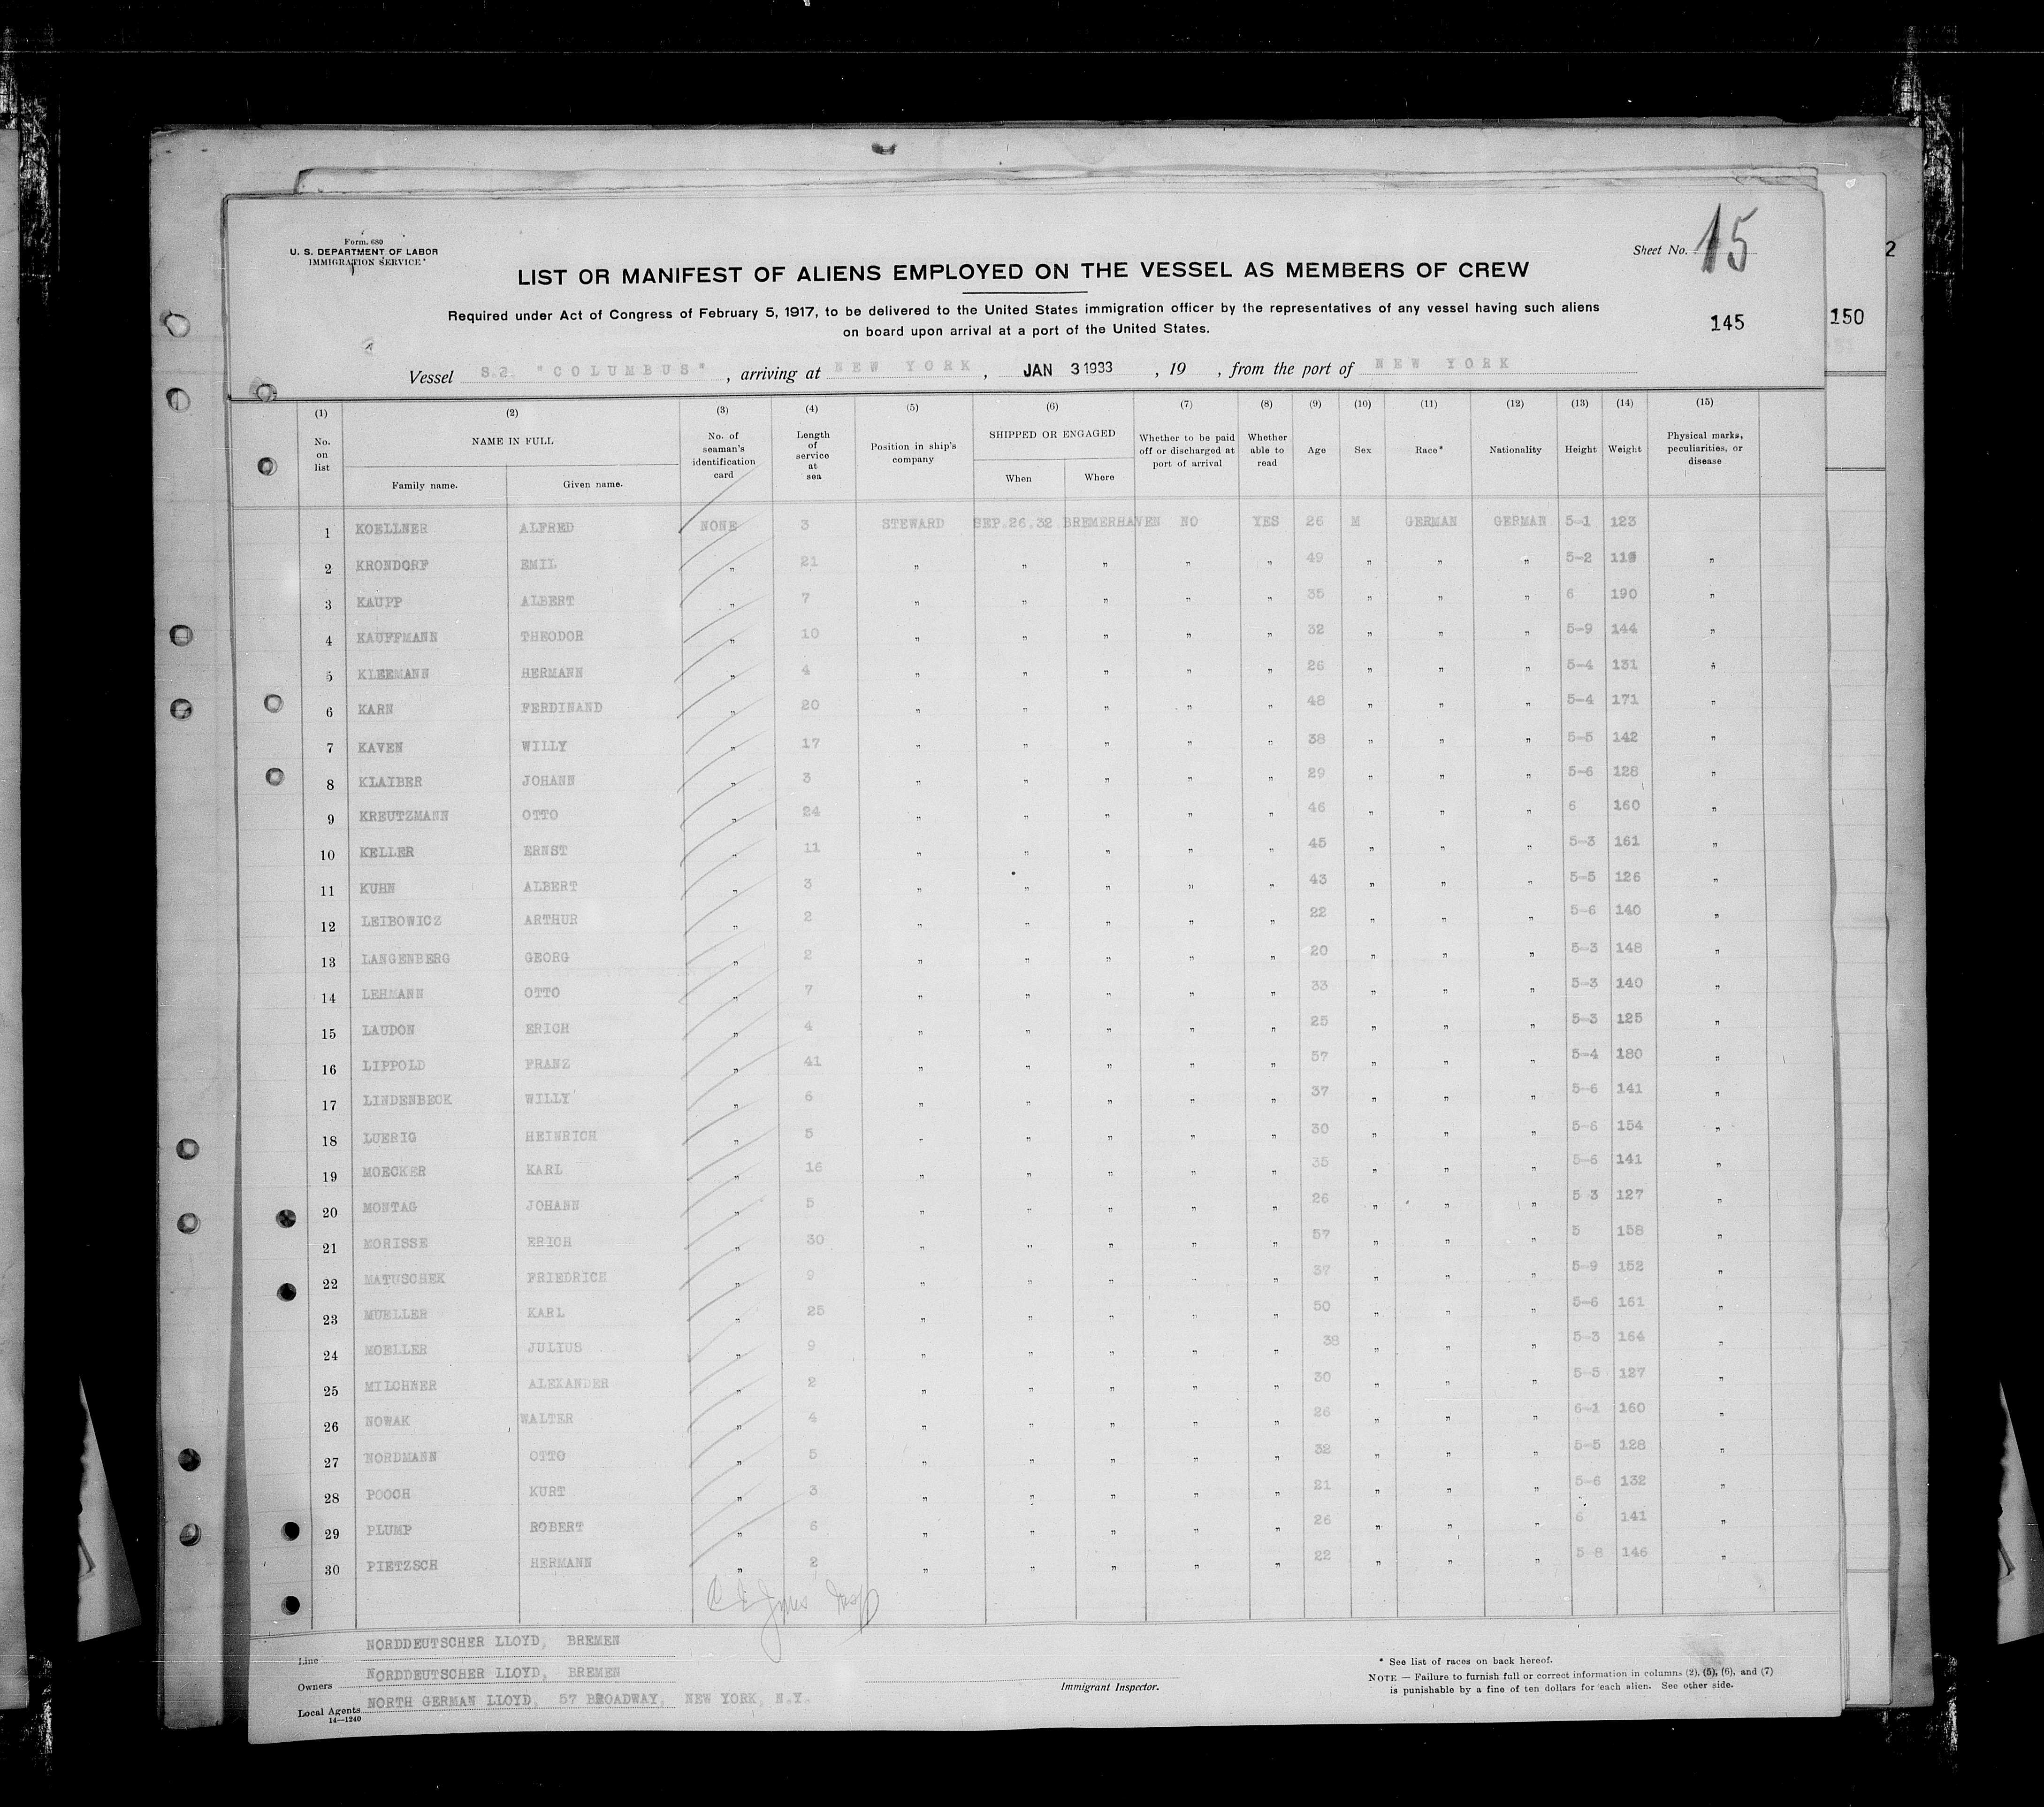 Form. 680
U. S. DEPARTMENT OF LABOR
IMMIGRATION SERVICE
Sheet No. 15
LIST OR MANIFEST OF ALIENS EMPLOYED ON THE VESSEL AS MEMBERS OF CREW
Required under Act of Congress of February 5, 1917, to be delivered to the United States immigration officer by the representatives of any vessel having such aliens
on board upon arrival at a port of the United States.
2
145
150
Vessel S.S. "COLUMBUS", arriving at NEW YORK, JAN 3 1933, 19 , from the port of NEW YORK
(1) (2) (3) (4) (5) (6) (7) (8) (9) (10) (11) (12) (13) (14) (15)
No. on list NAME IN FULL No. of seaman's identification card Length of service at sea Position in ship's company SHIPPED OR ENGAGED Whether to be paid off or discharged at port of arrival Whether able to read Age Sex Race* Nationality Height Weight Physical marks, peculiarities, or disease
Family name. Given name. When Where
1 KOELLNER ALFRED NONE 3 STEWARD SEP.26.32 BREMERHAVEN NO YES 26 M GERMAN GERMAN 5-1 123
2 KRONDORF EMIL " 21 " " " " " 49 " " " 5-2 "
3 KAUPP ALBERT " 7 " " " " " 35 " " " 6 190 "
4 KAUFFMANN THEODOR " 10 " " " " " 32 " " " 5-9 144 "
5 KLEEMANN HERMANN " 4 " " " " " 26 " " " 5-4 131 "
6 KARN FERDINAND " 20 " " " " " 48 " " " 5-4 171 "
7 KAVEN WILLY " 17 " " " " " 38 " " " 5-5 142 "
8 KLAIBER JOHANN " 3 " " " " " 29 " " " 5-6 128 "
9 KREUTZMANN OTTO " 24 " " " " " 46 " " " 6 160 "
10 KELLER ERNST " 11 " " " " " 45 " " " 5-3 161 "
11 KUHN ALBERT " 3 " " " " " 43 " " " 5-5 126 "
12 LEIBOWICZ ARTHUR " 2 " " " " " 22 " " " 5-6 140 "
13 LANGENBERG GEORG " 2 " " " " " 20 " " " 5-3 148 "
14 LEHMANN OTTO " 7 " " " " " 33 " " " 5-3 140 "
15 LAUDON ERICH " 4 " " " " " 25 " " " 5-3 125 "
16 LIPPOLD FRANZ " 41 " " " " " 57 " " " 5-4 180 "
17 LINDENBECK WILLY " 6 " " " " " 37 " " " 5-6 141 "
18 LUERIG HEINRICH " 5 " " " " " 30 " " " 5-6 154 "
19 MOECKER KARL " 16 " " " " " 35 " " " 5-6 141 "
20 MONTAG JOHANN " 5 " " " " " 26 " " " 5 3 127 "
21 MORISSE ERICH " 30 " " " " " 57 " " " 5 158 "
22 MATUSCHEK FRIEDRICH " 9 " " " " " 37 " " " 5-9 152 "
23 MUELLER KARL " 25 " " " " " 50 " " " 5-6 161 "
24 MOELLER JULIUS " 9 " " " " " 38 " " " 5-3 164 "
25 MILCHNER ALEXANDER " 2 " " " " " 30 " " " 5-5 127 "
26 NOWAK WALTER " 4 " " " " " 26 " " " 6-1 160 "
27 NORDMANN OTTO " 5 " " " " " 32 " " " 5-5 128 "
28 POOCH KURT " 3 " " " " " 21 " " " 5-6 132 "
29 PLUMP ROBERT " 6 " " " " " 26 " " " 6 141 "
30 PIETZSCH HERMANN " 2 " " " " " 22 " " " 5 8 146 "
Line NORDDEUTSCHER LLOYD, BREMEN
Owners NORDDEUTSCHER LLOYD, BREMEN
Local Agents NORTH GERMAN LLOYD, 57 BROADWAY, NEW YORK, N.Y.
14—1240
Immigrant Inspector.
* See list of races on back hereof.
NOTE — Failure to furnish full or correct information in columns (2), (5), (6), and (7)
is punishable by a fine of ten dollars for each alien. See other side.